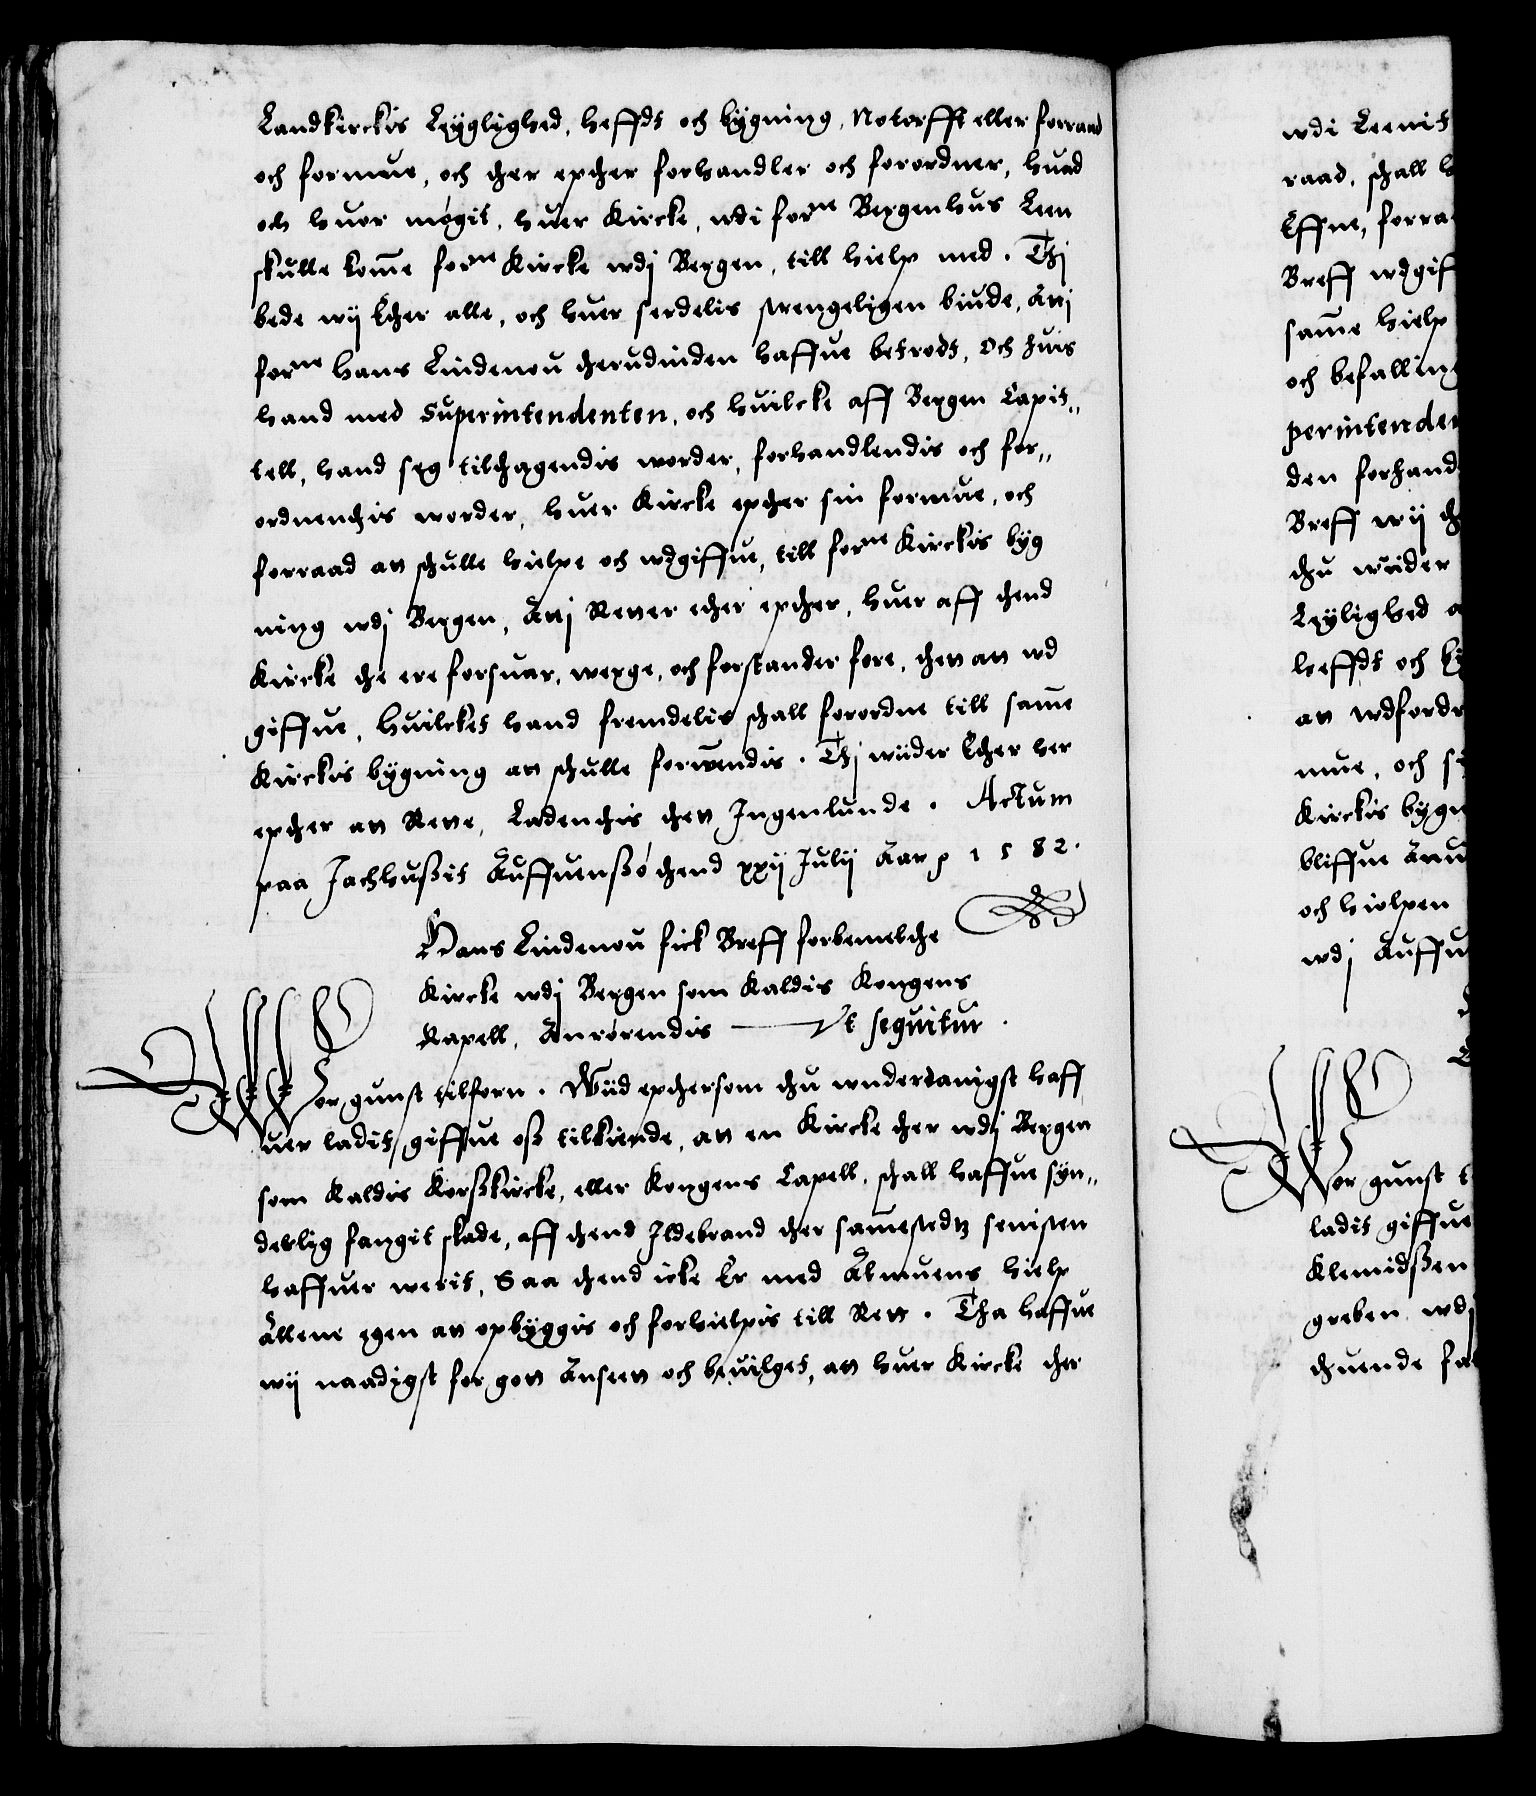 Landkirckis Leyglighed, hefft och bygning, Notorfft eller forraad
och formue, och ther epther forhandler och forordner, huad
och huor mögit, huer Kircke, udi forne Bergenhus Leen
skulle kome forne Kircke udj Bergen, till hielp med. Thj
bede wij Ether alle, och huer serdelis strengeligen biude, Attj
forne Hans Lindenou therudinden haffue betrodt, Och huis
hand med Superintendenten, och huilcke aff Bergen Capit„
tell, hand seg tilthagendis worder, forhandlendis och for„
ordnenthis worder, huer Kircke epther sin formue, och
forraad att schulle hielpe och udgiffue, till forne Kirckis byg
ning udj Bergen, Attj Retter ether epther, huer aff thend
Kircke the ere forsuar, werge, och forstander fore, thett att ud
giffue, Huilcket hand fremdelis schall forordne till same
Kirckis bygning att schulle forwendis. Thj wiider Ether her
epther att Rette, Ladenthis thett Ingenlunde. Actum
paa Jachthußit Auffuensßö thend xxij Julij Aar p 1582.
Hans Lindenou fick Breff forbemelthe
Kircke udj Bergen som Kaldis Kongens
Kapell, Anrörendis — Vt sequitur.
Wor gunst tilforn. Wiid epthersom thu underdanigst haff
uer ladit giffue oß tilkiende, att en Kircke ther udj Bergen
som Kaldis Korßkircke, eller Kongens Capell, schall haffue syn„
derlig fangit skade, aff thend Ildebrand ther samestedtz senisten
haffuer werit, Saa thend icke Er med Almuens hielp
Allene igen att opbyggis och forhielpis till Rett. Tha haffue
wij naadigst for gott Anseett och beuilget, att huer Kircke ther
udi Leenit
raad, schall
Effne, forra
Breff udgif
same hielp
och befalling
perintenden
den forhand
Breff wij th
thu wiider
Leylighed
hefft och by
att udfordr
mue, och
Kirckis bygn
bliffue
och hielpen
udj Auffu
Wor gunst t
ladit giffue
Klemidßen
greben udj
thuende